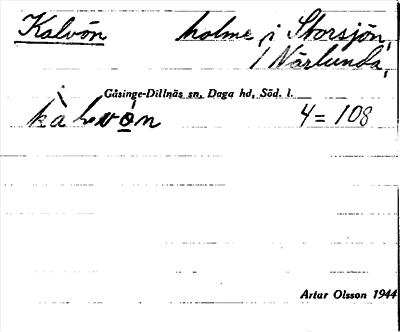 Kalvön holme i Storsjön,
/ Närlunda,
Gåsinge-Dillnäs sn, Daga hd, Söd. l.
kàlvo̱n 4=108
Artar Olsson 1944